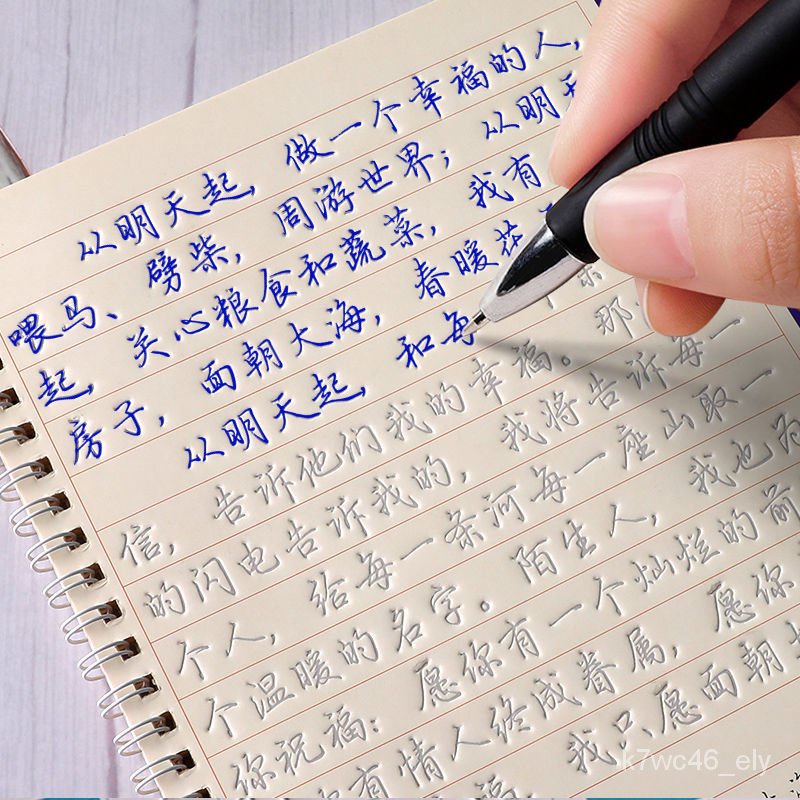 从明天起，做一个幸福的人，
喂马、劈柴，周游世界；从明天
起，关心粮食和蔬菜，我有
房子，面朝大海，春暖花
从明天起，和每
信，告诉他们我的幸福。那
的闪电告诉我的，我将告诉每一
个人，给每一条河每一座山取一
个温暖的名字。陌生人，我也为
你祝福：愿你有一个灿烂的前
你有情人终成眷属，愿你
福，我只愿面朝大
k7wc46_ely